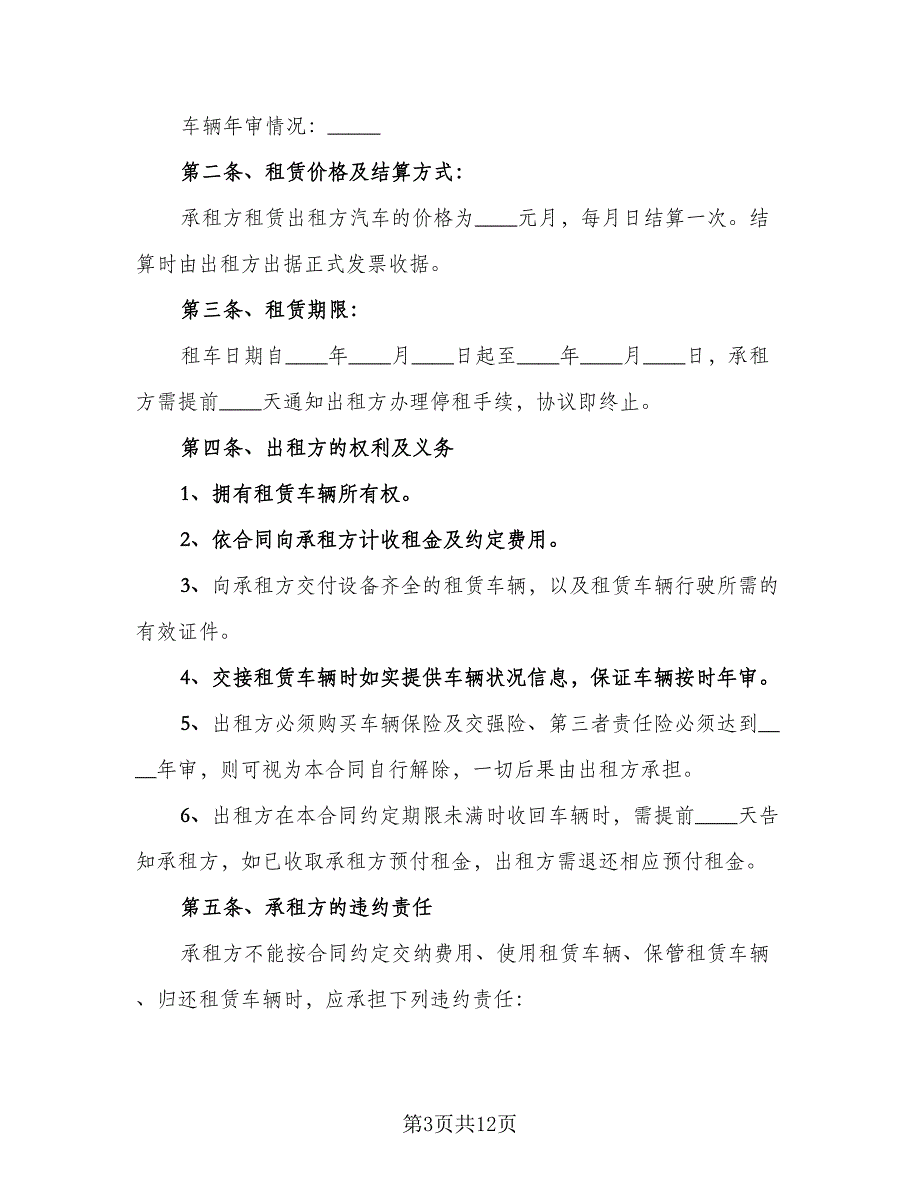 车辆年审情况：_____
第二条、租赁价格及结算方式：
承租方租赁出租方汽车的价格为____元月，每月日结算一次。结
算时由出租方出据正式发票收据。
第三条、租赁期限：
租车日期自____年____月____日起至____年____月____日，承租
方需提前____天通知出租方办理停租手续，协议即终止。
第四条、出租方的权利及义务
1、拥有租赁车辆所有权。
2、依合同向承租方计收租金及约定费用。
3、向承租方交付设备齐全的租赁车辆，以及租赁车辆行驶所需的
有效证件。
4、交接租赁车辆时如实提供车辆状况信息，保证车辆按时年审。
5、出租方必须购买车辆保险及交强险、第三者责任险必须达到__
__年审，则可视为本合同自行解除，一切后果由出租方承担。
6、出租方在本合同约定期限未满时收回车辆时，需提前____天告
知承租方，如已收取承租方预付租金，出租方需退还相应预付租金。
第五条、承租方的违约责任
承租方不能按合同约定交纳费用、使用租赁车辆、保管租赁车辆
、归还租赁车辆时，应承担下列违约责任：
第3页共12页